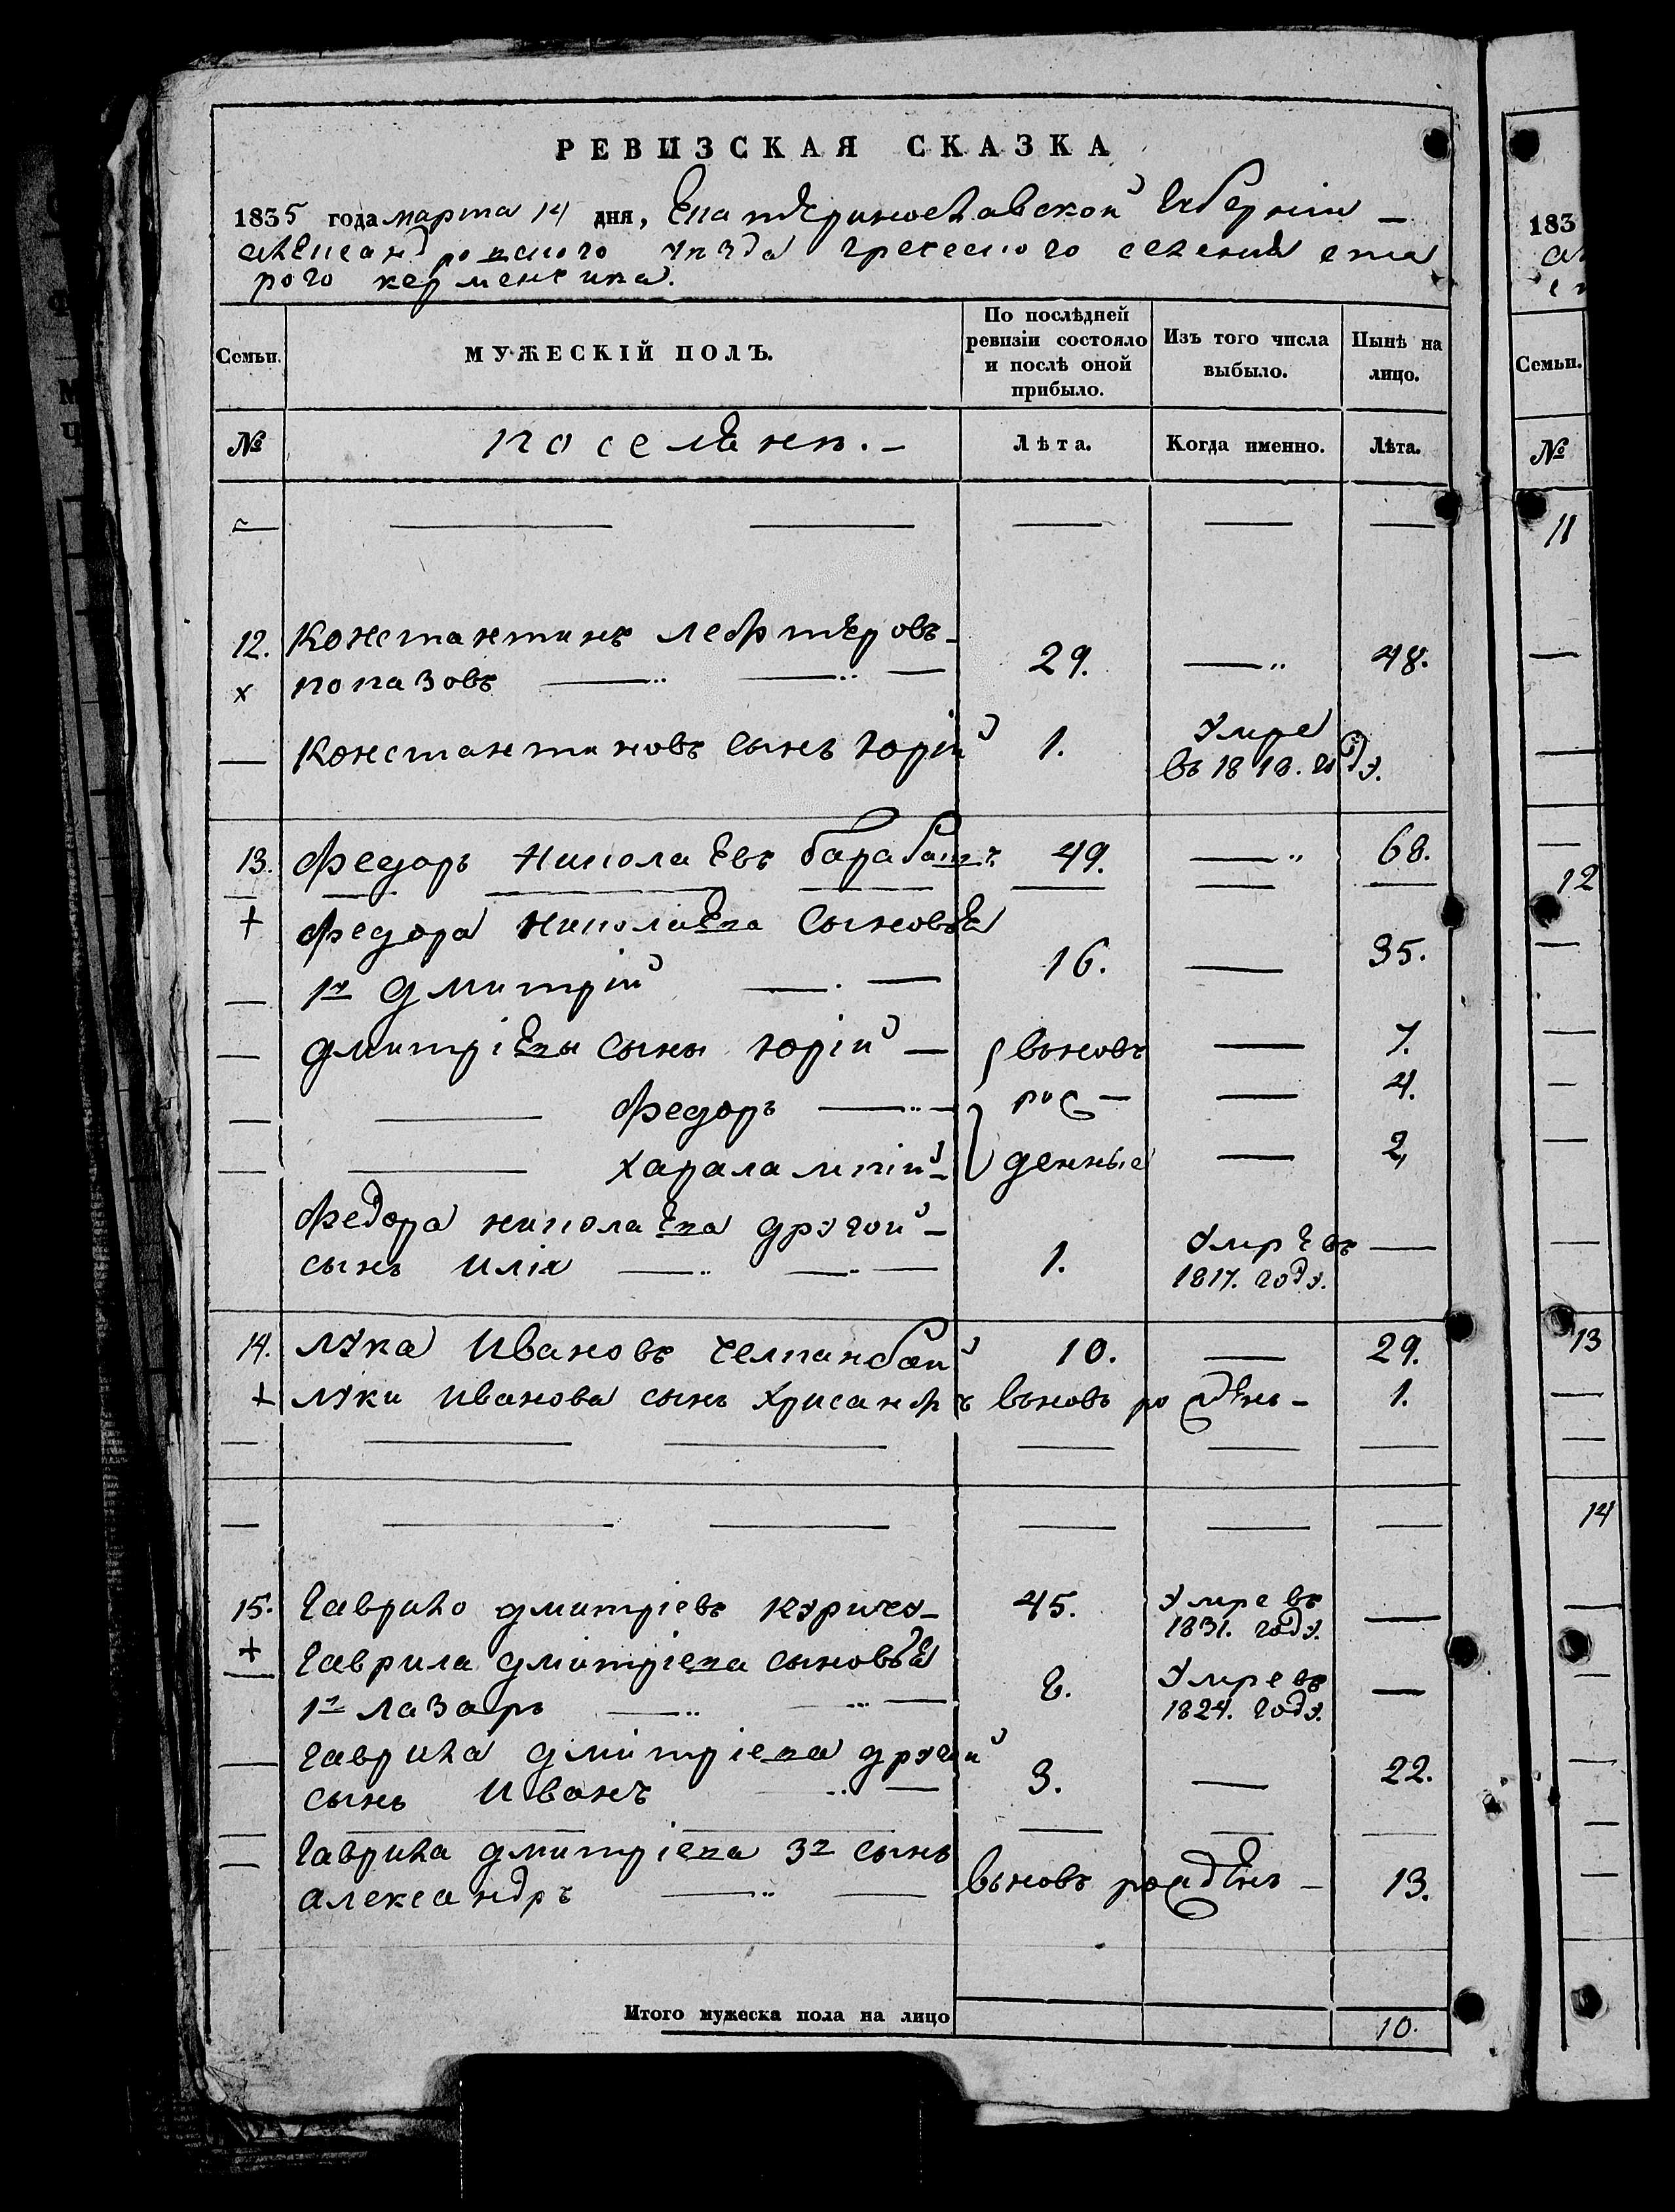 РЕВИЗСКАЯ СКАЗКА
1835 года марта 14 дня, Екатеринославской Губерніи —
александровского уезда греческого селения ста
рого керменчика.
Семьи.
МУЖЕСКІЙ ПОЛЪ.
По послѣдней ревизіи состояло и послѣ оной прибыло.
Изъ того числа выбыло.
Нынѣ на лицо.
№ поселянъ. — Лѣта. Когда именно. Лѣта.
12. Константинъ лефтеровъ
попазовъ 29. — 48.
Константиновъ сынъ юрій 1. Умре
въ 1818. году.
13. Федоръ николаевъ барабашъ 49. — 68.
Федора николаева сыновья
1й дмитрій 16. — 35.
дмитріевы сыны юрій — вновь — 7.
федоръ рож — 4.
харалампій денные — 2,
федора николаева другой
сынъ илія 1. Умре въ —
1817. году.
14. лука Ивановъ челпанбай 10. — 29.
луки иванова сынъ хрисанфъ вновь рожденъ — 1.
15. Гаврило дмитріевъ куричу 45. Умре въ —
1831. году.
Гаврила дмитріева сыновья
1й лазарь 8. Умре въ —
1824. году.
Гаврила дмитріева другой
сынъ иванъ 3. — 22.
Гаврила дмитріева 3й сынъ
александръ вновь рожденъ — 13.
Итого мужеска пола на лицо 10.
183
Семьи.
№
11
12
13
14